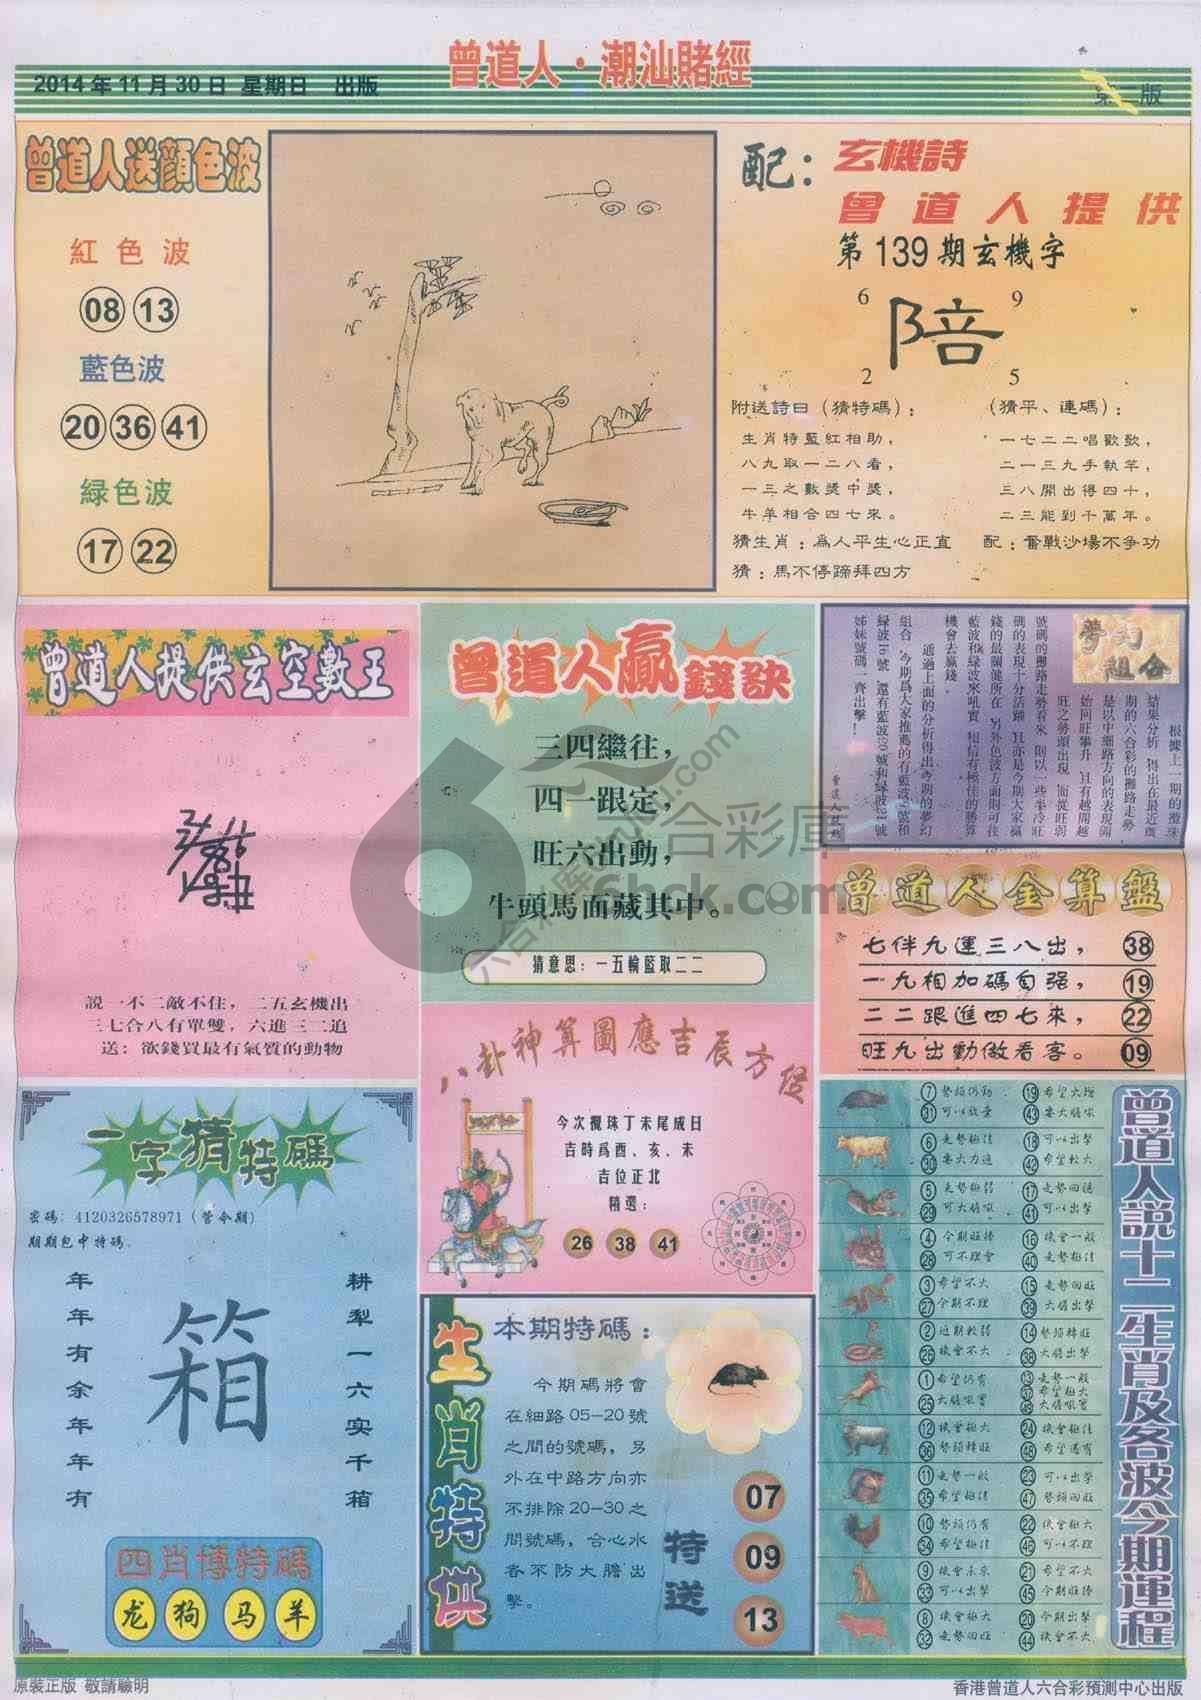 曾道人·潮汕賭經
2014年11月30日 星期日 出版
第二版
曾道人送顔色波
紅色波
08 13
藍色波
20 36 41
緑色波
17 22
配：
玄機詩
曾道人提供
第139期玄機字
6 9
陪
2 5
附送詩曰（猜特碼）：
生肖特藍紅相助，
八九取一二八看，
一三之數獎中獎，
牛羊相合四七來。
（猜平、連碼）：
一七二二唱歡歌，
二一三九手執竿，
三八開出得四十，
二三能到千萬年。
猜生肖：爲人平生心正直
配：奮戰沙場不争功
猜：馬不停蹄拜四方
曾道人提供玄空數王
説一不二敵不住，二五玄機出
三七合八有單雙，六進三二追
送：欲錢買最有氣質的動物
曾道人贏錢訣
三四繼往，
四一跟定，
旺六出動，
牛頭馬面藏其中。
猜意思：一五輪藍取二二
夢幻
組合
根據上一期的攪珠
結果分析，得出在最近幾
期的六合彩的攤路走勢
是以中細路方向的表現開
始回旺攀升，且有越開越
旺之勢頭出現，而從旺弱
號碼的攤路走勢看來，則以一些半冷旺
碼的表現十分活躍，且亦是今期大家贏
錢的最關健所在，另外色波方面則可從
藍波和緑波來吼實，相信有極佳的勝算
機會去贏錢。
通過上面的分析得出今期的夢幻
組合，今期爲大家推薦的有藍波
緑波16號，還有藍波09號和緑波21號
姊妹號碼一齊出擊！
曾道人金算盤
七伴九運三八出， 38
一九相加碼自强， 19
二二跟進四七來， 22
旺九出動做看客。 09
一字猜特碼
密碼：4120326578971（管令期）
期期包中特碼
年年有余年年有
箱
耕犁一六实千箱
四肖博特碼
龙 狗 马 羊
八卦神算圖應吉辰方位
今次攪珠丁未尾成日
吉時爲酉、亥、未
吉位正北
精選：
26 38 41
生肖特供
本期特碼：
今期碼將會
在細路05-20號
之間的號碼，另
外在中路方向亦
不排除20-30之
間號碼，合心水
者不防大膽出
擊。
特送
07
09
13
曾道人説十二生肖及各波今期運程
7 勢頭仍勁 19 希望大增
31 可以放量 43 要大膽吼
6 走勢極佳 18 可以出擊
30 要大力追 42 希望較大
5 走勢極弱 17 走勢回穩
29 可大膽吼 41 可以出擊
4 今期旺捧 16 機會一般
28 可不理會 40 走勢極佳
3 希望不大 15 走勢回旺
27 今期不理 39 大膽出擊
2 近期較弱 14 勢頭轉旺
26 機會不大 38 大膽出擊
1 希望仍有 13 走勢一般
37 希望極大
25 大膽吼實 49 大膽吼實
12 機會極大 24 機會極佳
36 勢頭轉旺 48 希望還有
11 走勢一般 23 可以出擊
35 希望極佳 47 勢頭回旺
10 勢頭仍有 22 機會極大
34 希望極佳 46 可以不理
9 機會未來 21 希望不大
33 可以出擊 45 今期旺捧
8 機會極大 20 今期出擊
32 走勢回旺 44 機會不大
六合彩庫
6hck.com
原裝正版 敬請驗明
香港曾道人六合彩預測中心出版